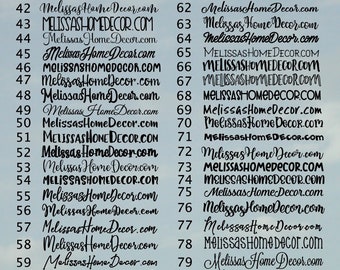 42 MelissasHomeDecor.com
43 MELISSASHOMEDECOR.COM
44 MelissasHomeDecor.com
45 MelissasHomeDecor.com
46 MELISSASHOMEDECOR.COM
47 MelissasHomeDecor.com
48 MelissasHomeDecor.com
49 MelissasHomeDecor.com
50 MelissasHomeDecor.com
51 MELISSASHOMEDECOR.COM
52 MELISSASHOMEDECOR.COM
53 MelissasHomeDecor.com
54 MELISSASHOMEDECOR.COM
55 MelissasHomeDecor.com
56 MelissasHomeDecor.com
57 MelissasHomeDecor.com
58 MelissasHomeDecor.com
59 MelissasHomeDecor.com
62 MelissasHomeDecor.com
63 MelissasHomeDecor.com
64 MelissasHomeDecor.com
65 MelissasHomeDecor.com
66 MELISSASHOMEDECOR.COM
67 MELISSASHOMEDECOR.COM
68 MELISSASHOMEDECOR.COM
69 MelissasHomeDecor.com
70 MelissasHomeDecor.com
71 MELISSASHOMEDECOR.COM
72 MelissasHomeDecor.com
73 MELISSASHOMEDECOR.COM
74 MelissasHomeDecor.com
75 MelissasHomeDecor.com
76 MelissasHomeDecor.com
77 MelissasHomeDecor.com
78 MELISSASHOMEDECOR.COM
79 MelissasHomeDecor.com